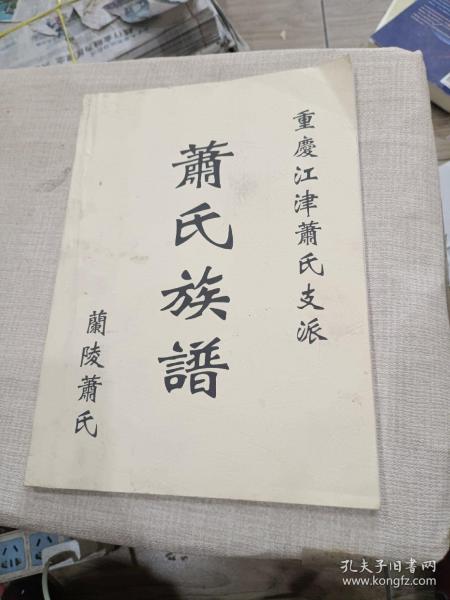 重慶江津蕭氏支派
蕭氏族譜
蘭陵蕭氏
孔夫子旧书网
www.kongfz.com